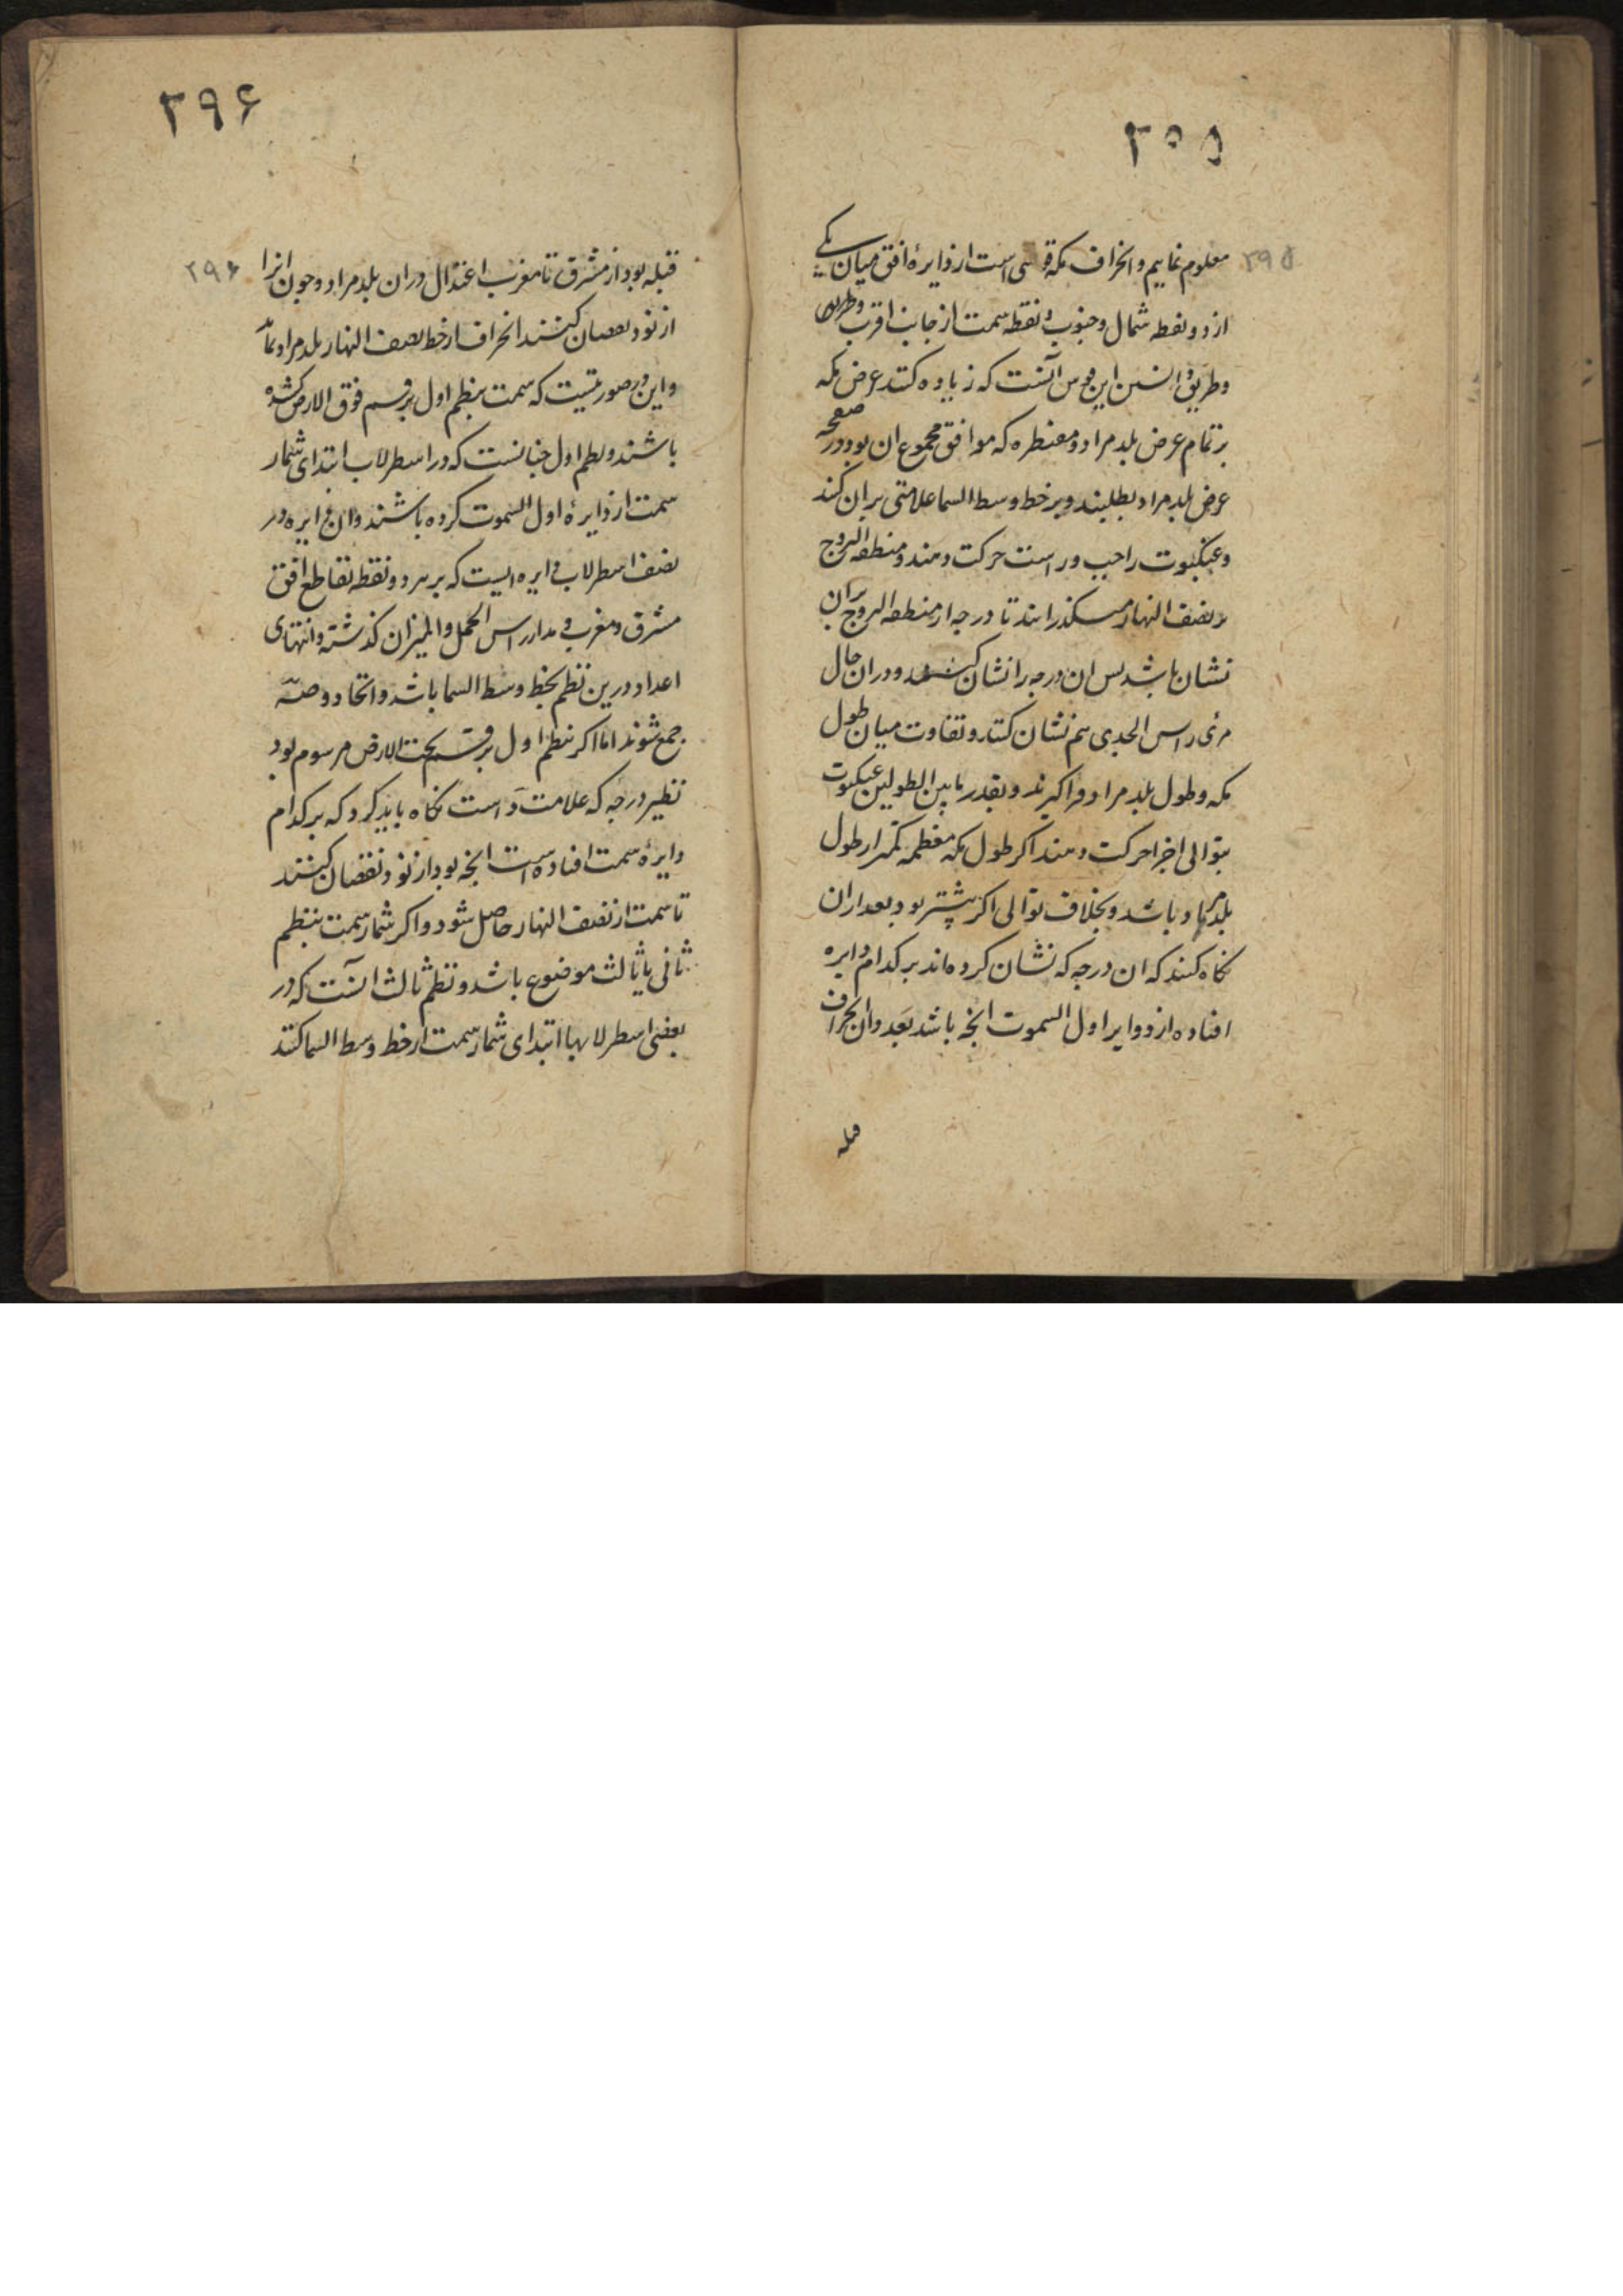 ۲۹۵
معلوم نماییم وانحراف مکه قوسی است از دایرهٔ افق میان یکی
از دو نقطه شمال وجنوب ونقطه سمت از جانب اقرب
وطریق دانستن این قوس آنست که زیاده کنند عرض مکه
بر تمام عرض بلد مراد ومقنطره که موافق مجموع ان بود در صفحه
عرض بلد مراد بطلبند وبر خط وسط السما علامتی بران کنند
وعنکبوت را چپ وراست حرکت دهند ومنطقه البروج
بر نصف النهار میگذرانند تا درجه از منطقه البروج بران
نشان باشد پس ان درجه را نشان کنند ودران حال
مری راس الجدی هم نشان کنند وتفاوت میان طول
مکه وطول بلد مراد فراگیرند وبقدر ما بین الطولین عنکبوت
بتوالی اجزا حرکت دهند اکر طول مکه معظمه کمتر از طول
بلد مراد باشد وبخلاف توالی اکر بیشتر بود بعد ازان
نکاه کنند که ان درجه که نشان کرده اند بر کدام دایره
افتاده از دوایر اول السموت انچه باشد بعد وانحراف
قبله
۲۹۶
۲۹۶
قبله بود از مشرق تا مغرب اعتدال دران بلد مراد وچون انرا
از نود نقصان کنند انحراف از خط نصف النهار بلد مراد بماند
واین در صورتیست که سمت بنظم اول بر قسم فوق الارض کشیده
باشند ونظم اول چنانست که در اسطرلاب ابتدای شمار
سمت از دایرهٔ اول السموت کرده باشند وان دایره در
نصف اسطرلاب دایره ایست که بر سر دو نقطه تقاطع افق
مشرق ومغرب ومدار راس الحمل والمیزان کذشته وانتهای
اعداد درین نظم بخط وسط السما باشد وانجا دو حصّه
جمع شوند اما اکر بنظم اول بر قسم تحت الارض مرسوم بود
نظیر درجه که علامت دواست نکاه باید کرد که بر کدام
دایرهٔ سمت افتاده است انچه بود از نود نقصان کنند
تا سمت از نصف النهار حاصل شود واکر شمار سمت بنظم
ثانی یا ثالث موضوع باشد ونظم ثالث آنست که در
بعضی اسطرلابها ابتدای شمار سمت از خط وسط السما کنند